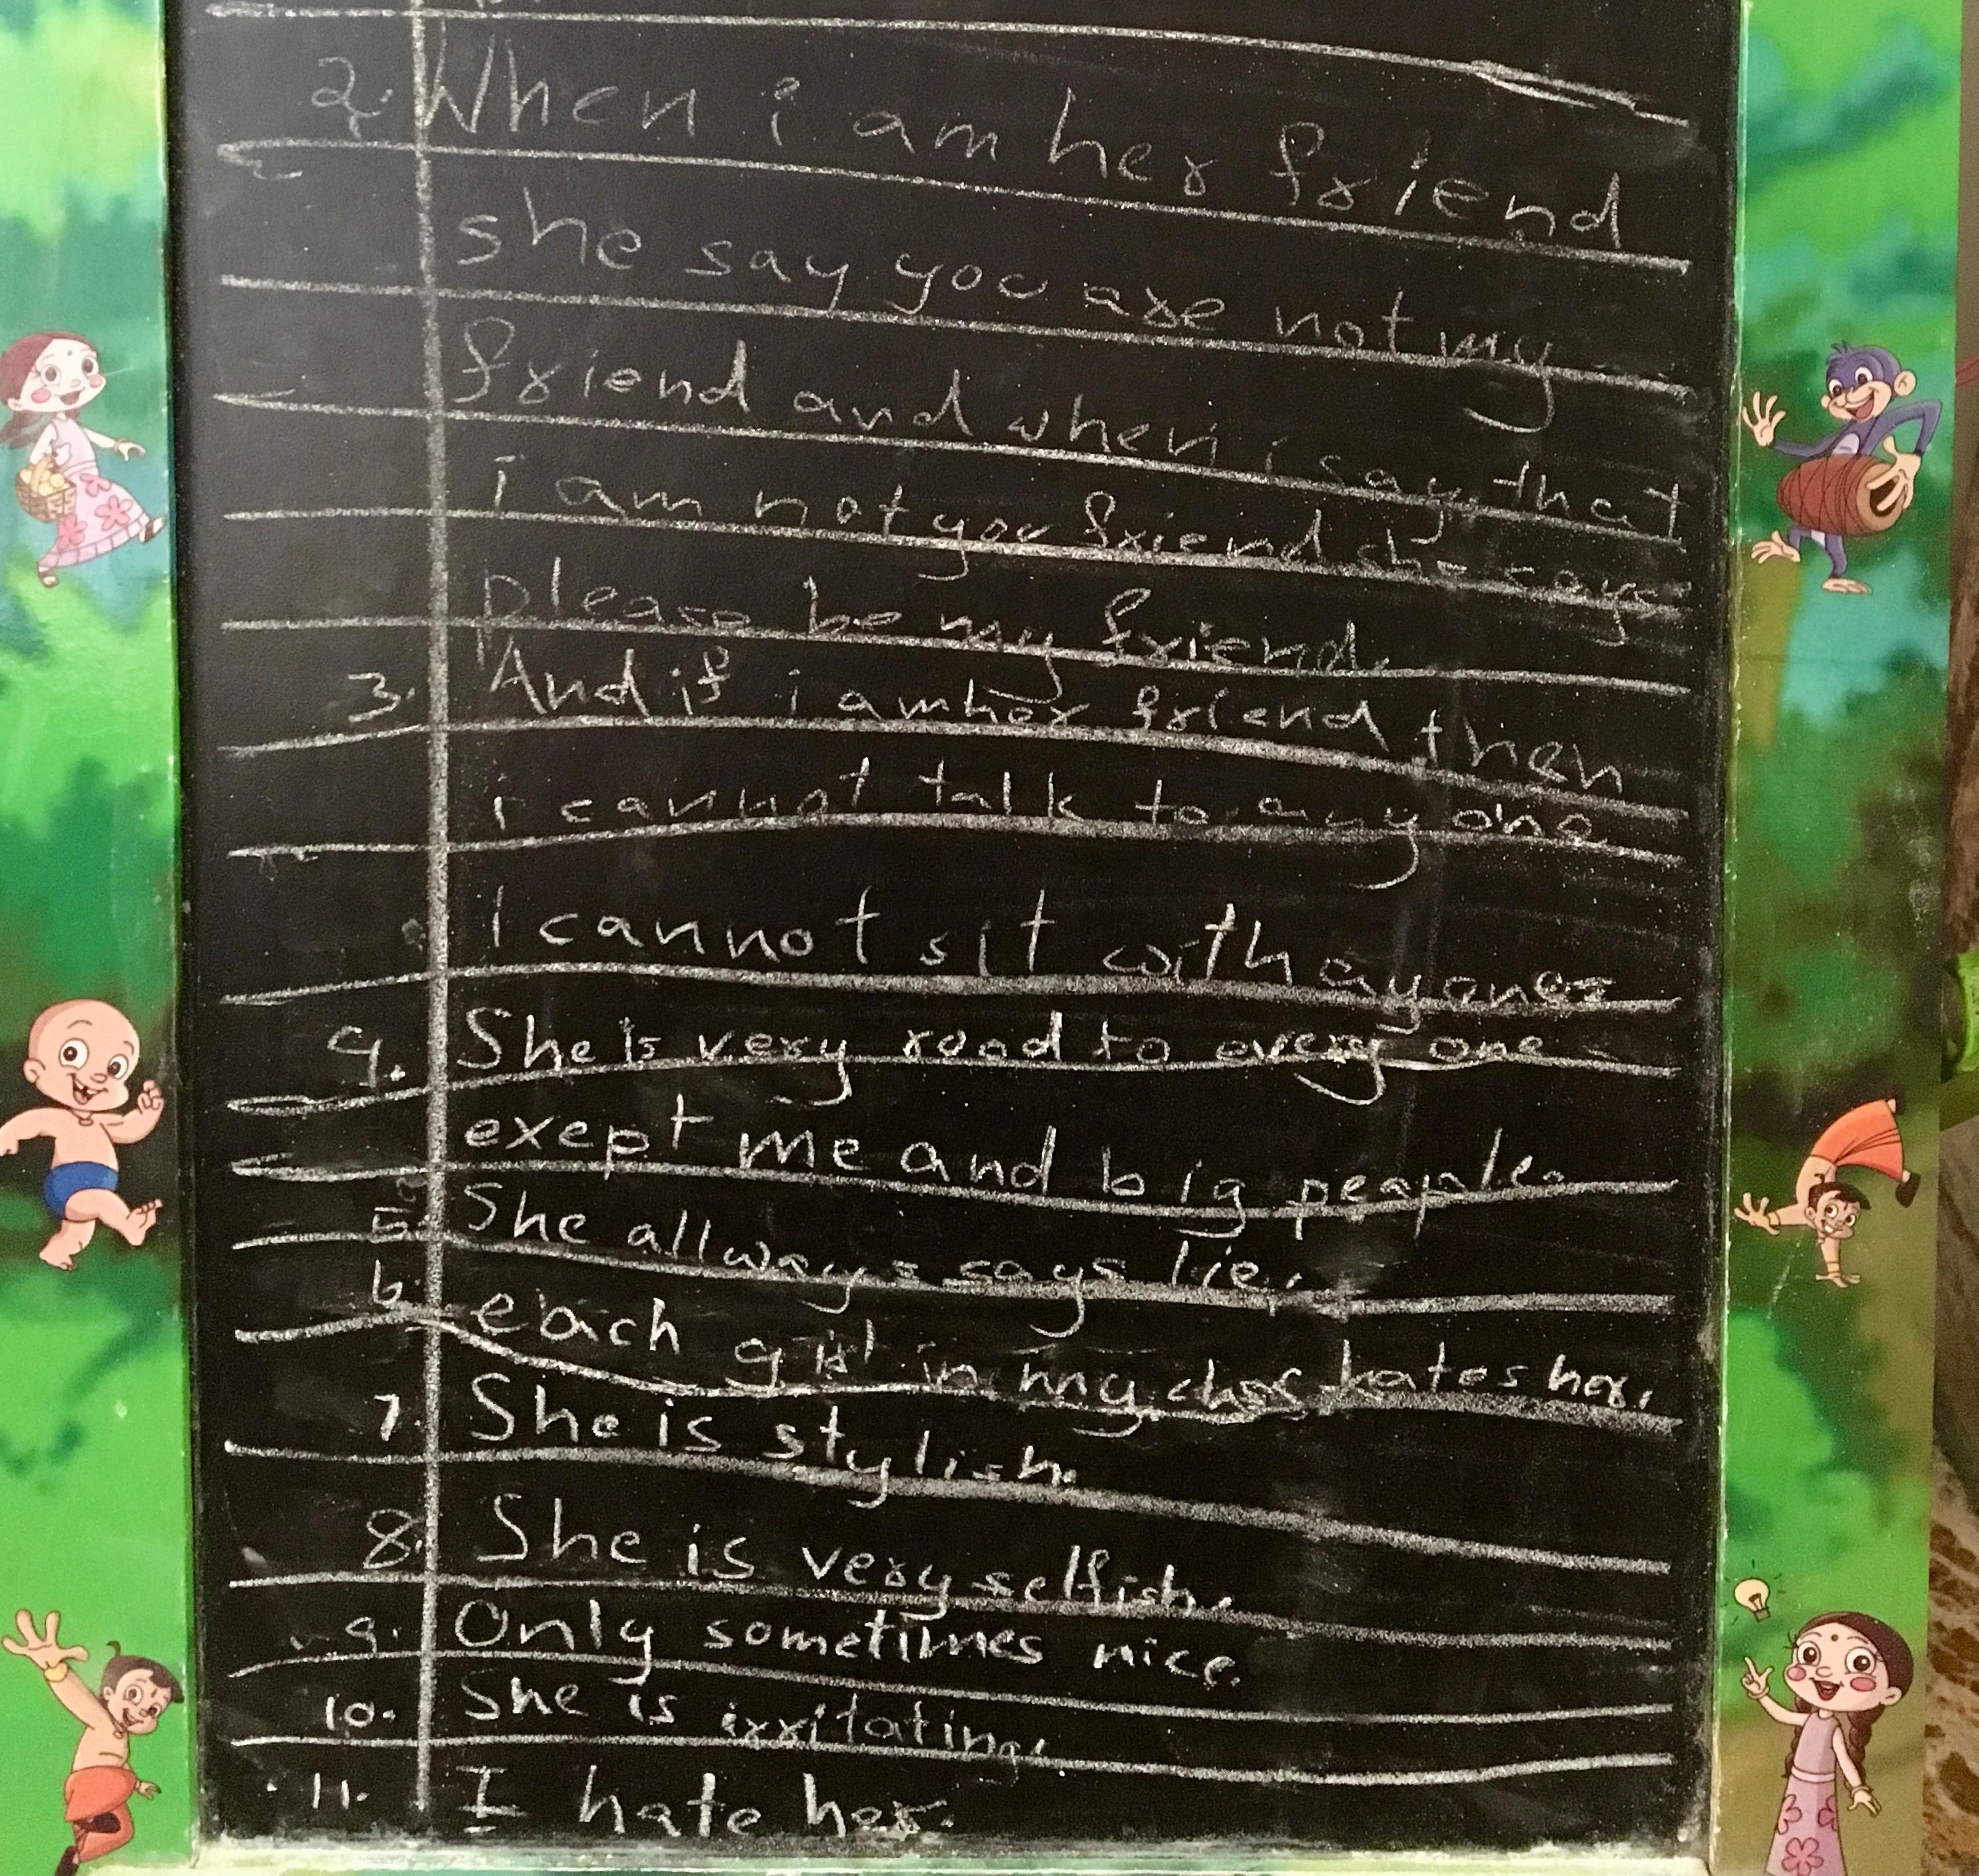 2. When i am her friend
she say you are not my
friend and when i say that
i am not you friend she says
please be my friend.
3. And if i am her friend then
i cannot talk to any one
i cannot sit with ayones
4. She is very rood to every one
exept me and big peaple.
5. She allways says lie.
6. each girl in my clas hates her.
7. She is stylish.
8. She is very selfish.
9. Only sometimes nice.
10. She is irritating.
11. I hate her.